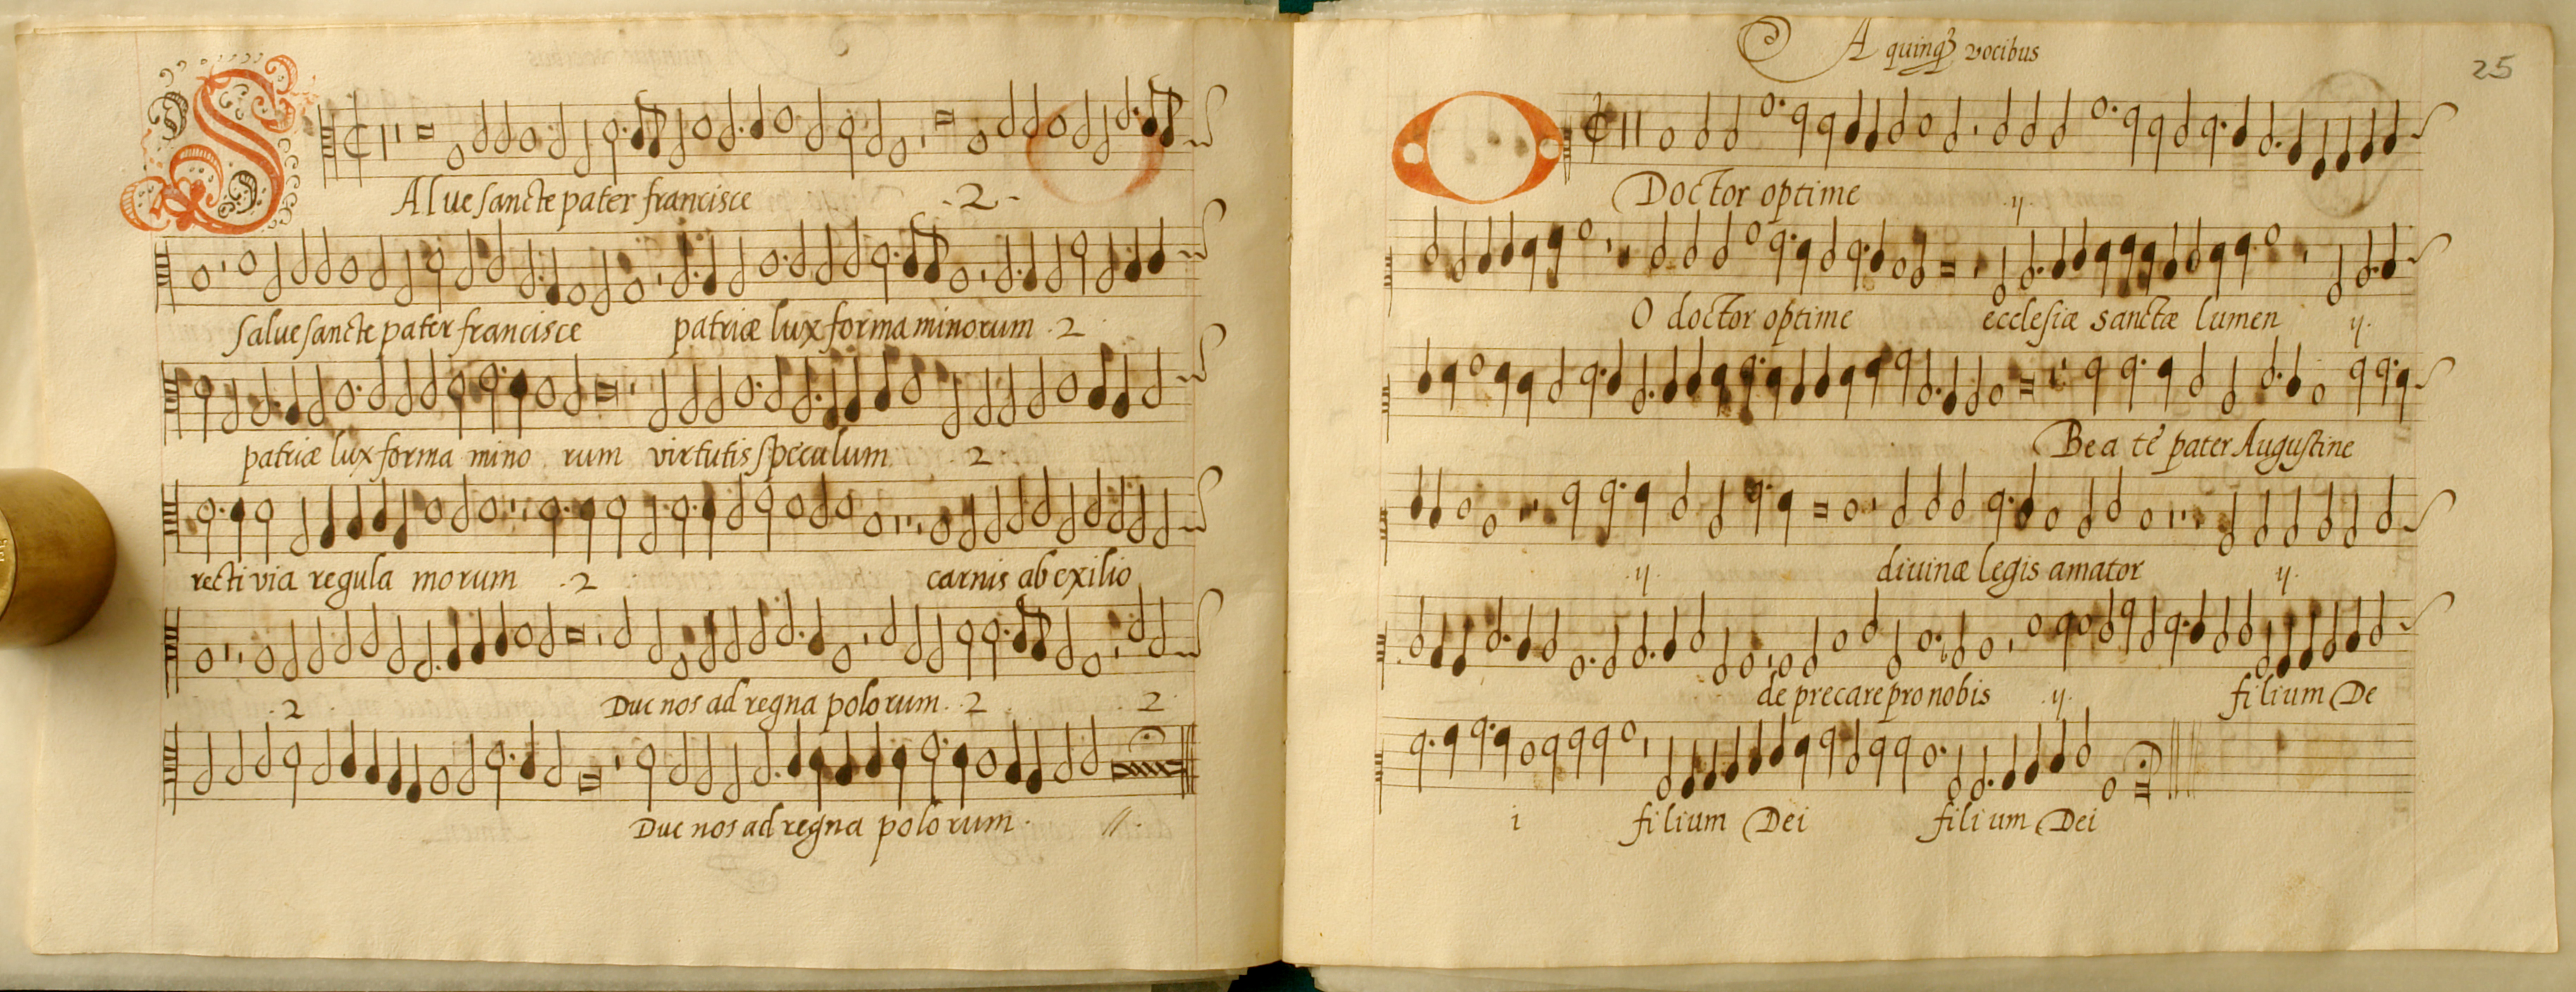 SAlue sancte pater francisce .2.
Salue sancte pater francisce patriæ lux forma minorum .2.
patriæ lux forma mino rum virtutis speculum .2.
recti via regula morum .2 carnis ab exilio
.2. Duc nos ad regna polo rum .2. .2.
Duc nos ad regna polo rum. //.
A quinq3 vocibus
25
O Doctor optime .ij.
O doctor optime ecclesiæ sanctæ lumen ij.
Bea te pater Augustine
.ij. diuinæ legis amator ij.
de precare pro nobis .ij. filium De
i filium Dei fili um Dei